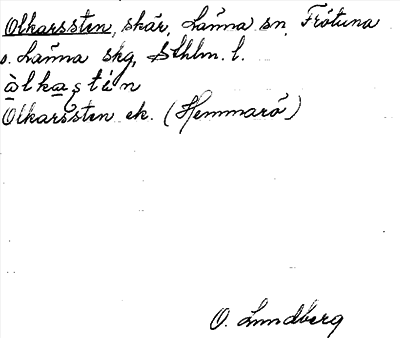 Olkarssten, skär, Länna sn, Frötuna
o. Länna skg, Sthlm. l.
àlkaştén
Olkarssten ek. (Hemmarö)
O. Lundberg